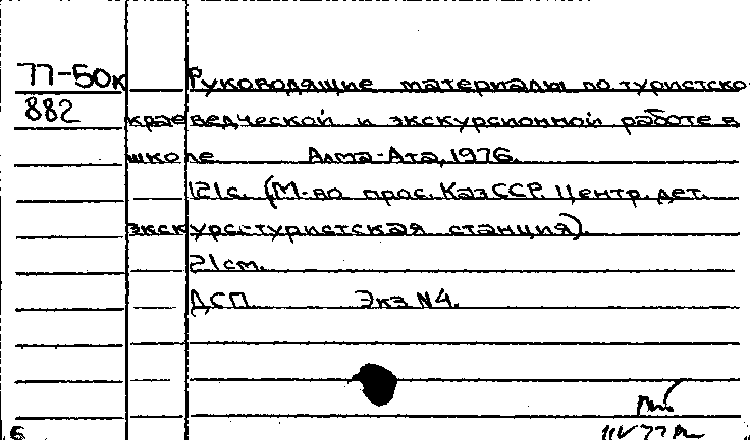 77-50к Руководящие материалы по туристско
882 краеведческой и экскурсионной работе в
школе Алма-Ата, 1976.
121с. (М-во прос. КазССР. Центр. дет.
экскурс-туристская станция).
21см.
ДСП. Экз N4.
6